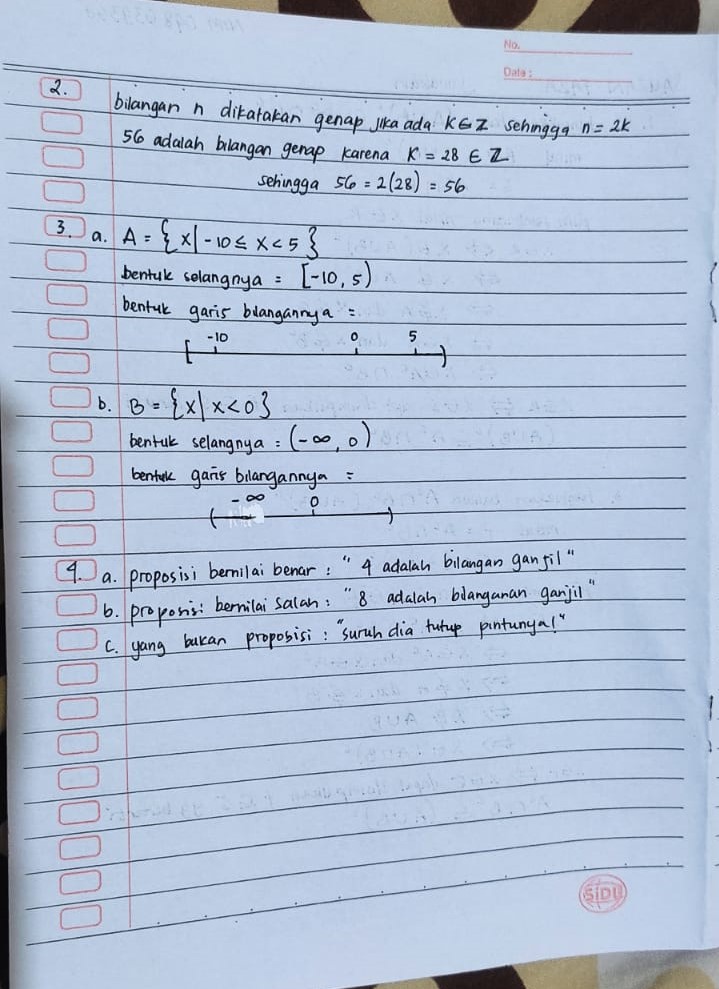 No.
Date :
2.
bilangan n dikatakan genap jika ada K∈Z sehingga n = 2K
56 adalah bilangan genap karena K = 28 ∈ Z
sehingga 56 = 2(28) = 56
3. a. A = {x| -10 ≤ x < 5 }
bentuk selangnya = [-10, 5)
bentuk garis bilangannya =
-10 0 5
[ )
b. B = {x| x<0}
bentuk selangnya = (-∞, 0)
bentuk garis bilangannya =
-∞ 0
( )
4. a. proposisi bernilai benar : " 4 adalah bilangan ganjil "
b. proposisi bernilai salah : "8 adalah bilanganan ganjil "
c. yang bukan proposisi : "suruh dia tutup pintunya!"
SiDU